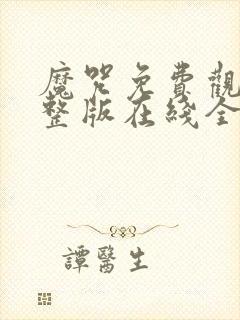 魔咒免費觀
整版在綫全
譚醫生